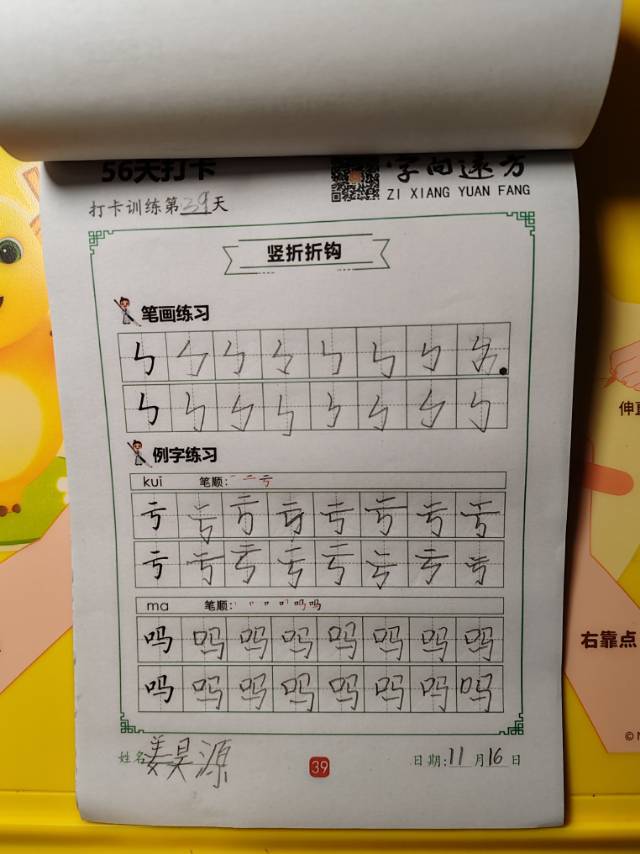 56天打卡
字向远方
ZI XIANG YUAN FANG
打卡训练第39天
竖折折钩
笔画练习
ㄣ ㄣ ㄣ ㄣ ㄣ ㄣ ㄣ
ㄣ ㄣ ㄣ ㄣ ㄣ ㄣ ㄣ ㄣ
例字练习
kuī 笔顺: 一 二 亏
亏 亏 亏 亏 亏 亏 亏 亏
亏 亏 亏 亏 亏 亏 亏 亏
ma 笔顺:
吗 吗 吗 吗 吗 吗 吗 吗
吗 吗 吗 吗 吗 吗 吗 吗
姓名 姜昊源
39
日期: 11 月 16 日
右靠点